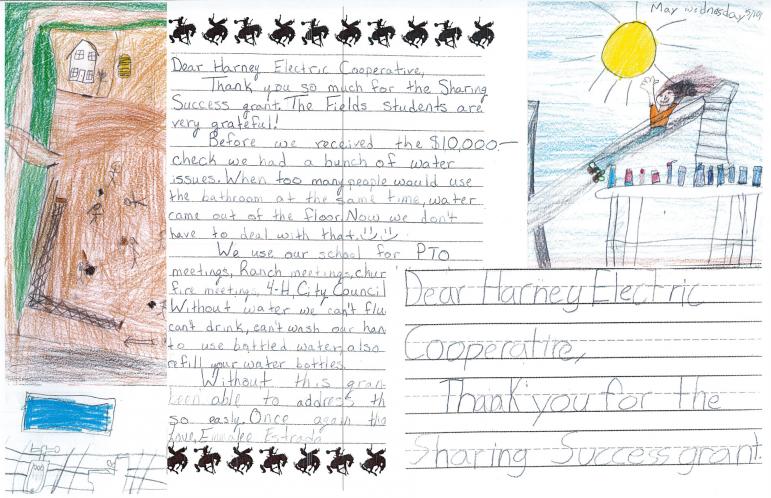 May wednesday
Dear Harney Electric Cooperative,
Thank you so much for the Sharing
Success grant. The Fields students are
very grateful!
Before we received the $10,000.—
check we had a bunch of water
issues. When too many people would use
the bathroom at the same time, water
came out of the floor. Now we don't
have to deal with that.
We use our school for PTO
meetings, Ranch meetings, chur
fire meetings, 4-H, City Council
Without water we can't flu
can't drink, can't wash our han
to use bottled water, also
refill your water bottles.
Without this gran
been able to address th
so easily. Once again tha
Love, Estrada
Dear Harney Electric
Cooperative,
Thank you for the
Sharing Success grant.